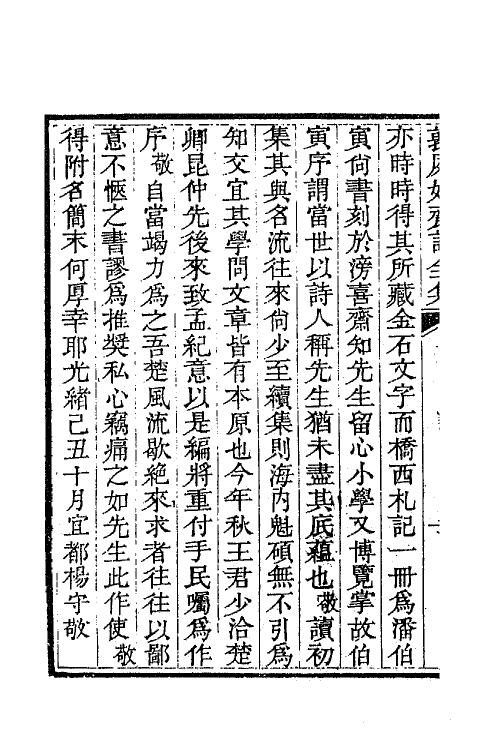 亦時時得其所藏金石文字而橋西札記一冊爲潘伯
寅尙書刻於滂喜齋知先生留心小學又博覽掌故伯
寅序謂當世以詩人稱先生猶未盡其底蘊也敬讀初
集其與名流往來尙少至續集則海內魁碩無不引爲
知交宜其學問文章皆有本原也今年秋王君少洽楚
卿昆仲先後來致孟紀意以是編將重付手民囑爲作
序敬自當竭力爲之吾楚風流歇絕來求者往往以鄙
意不愜之書謬爲推奬私心竊痛之如先生此作使敬
得附名簡末何厚幸耶光緒己丑十月宜都楊守敬